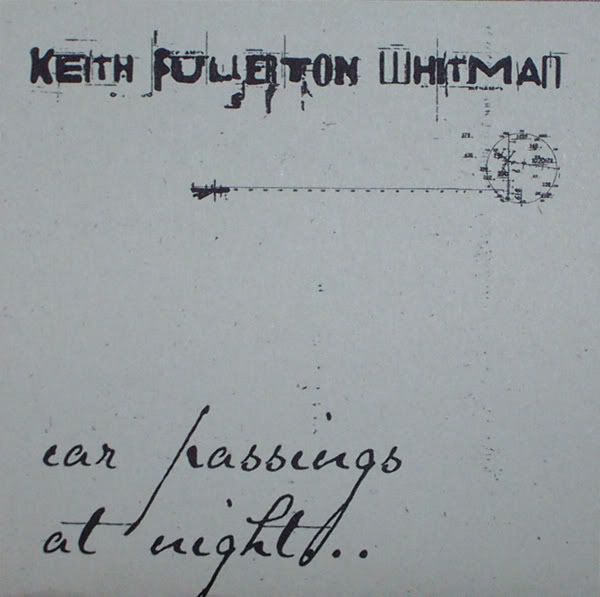 KEITH FULLERTON WHITMAN
car passings
at night...